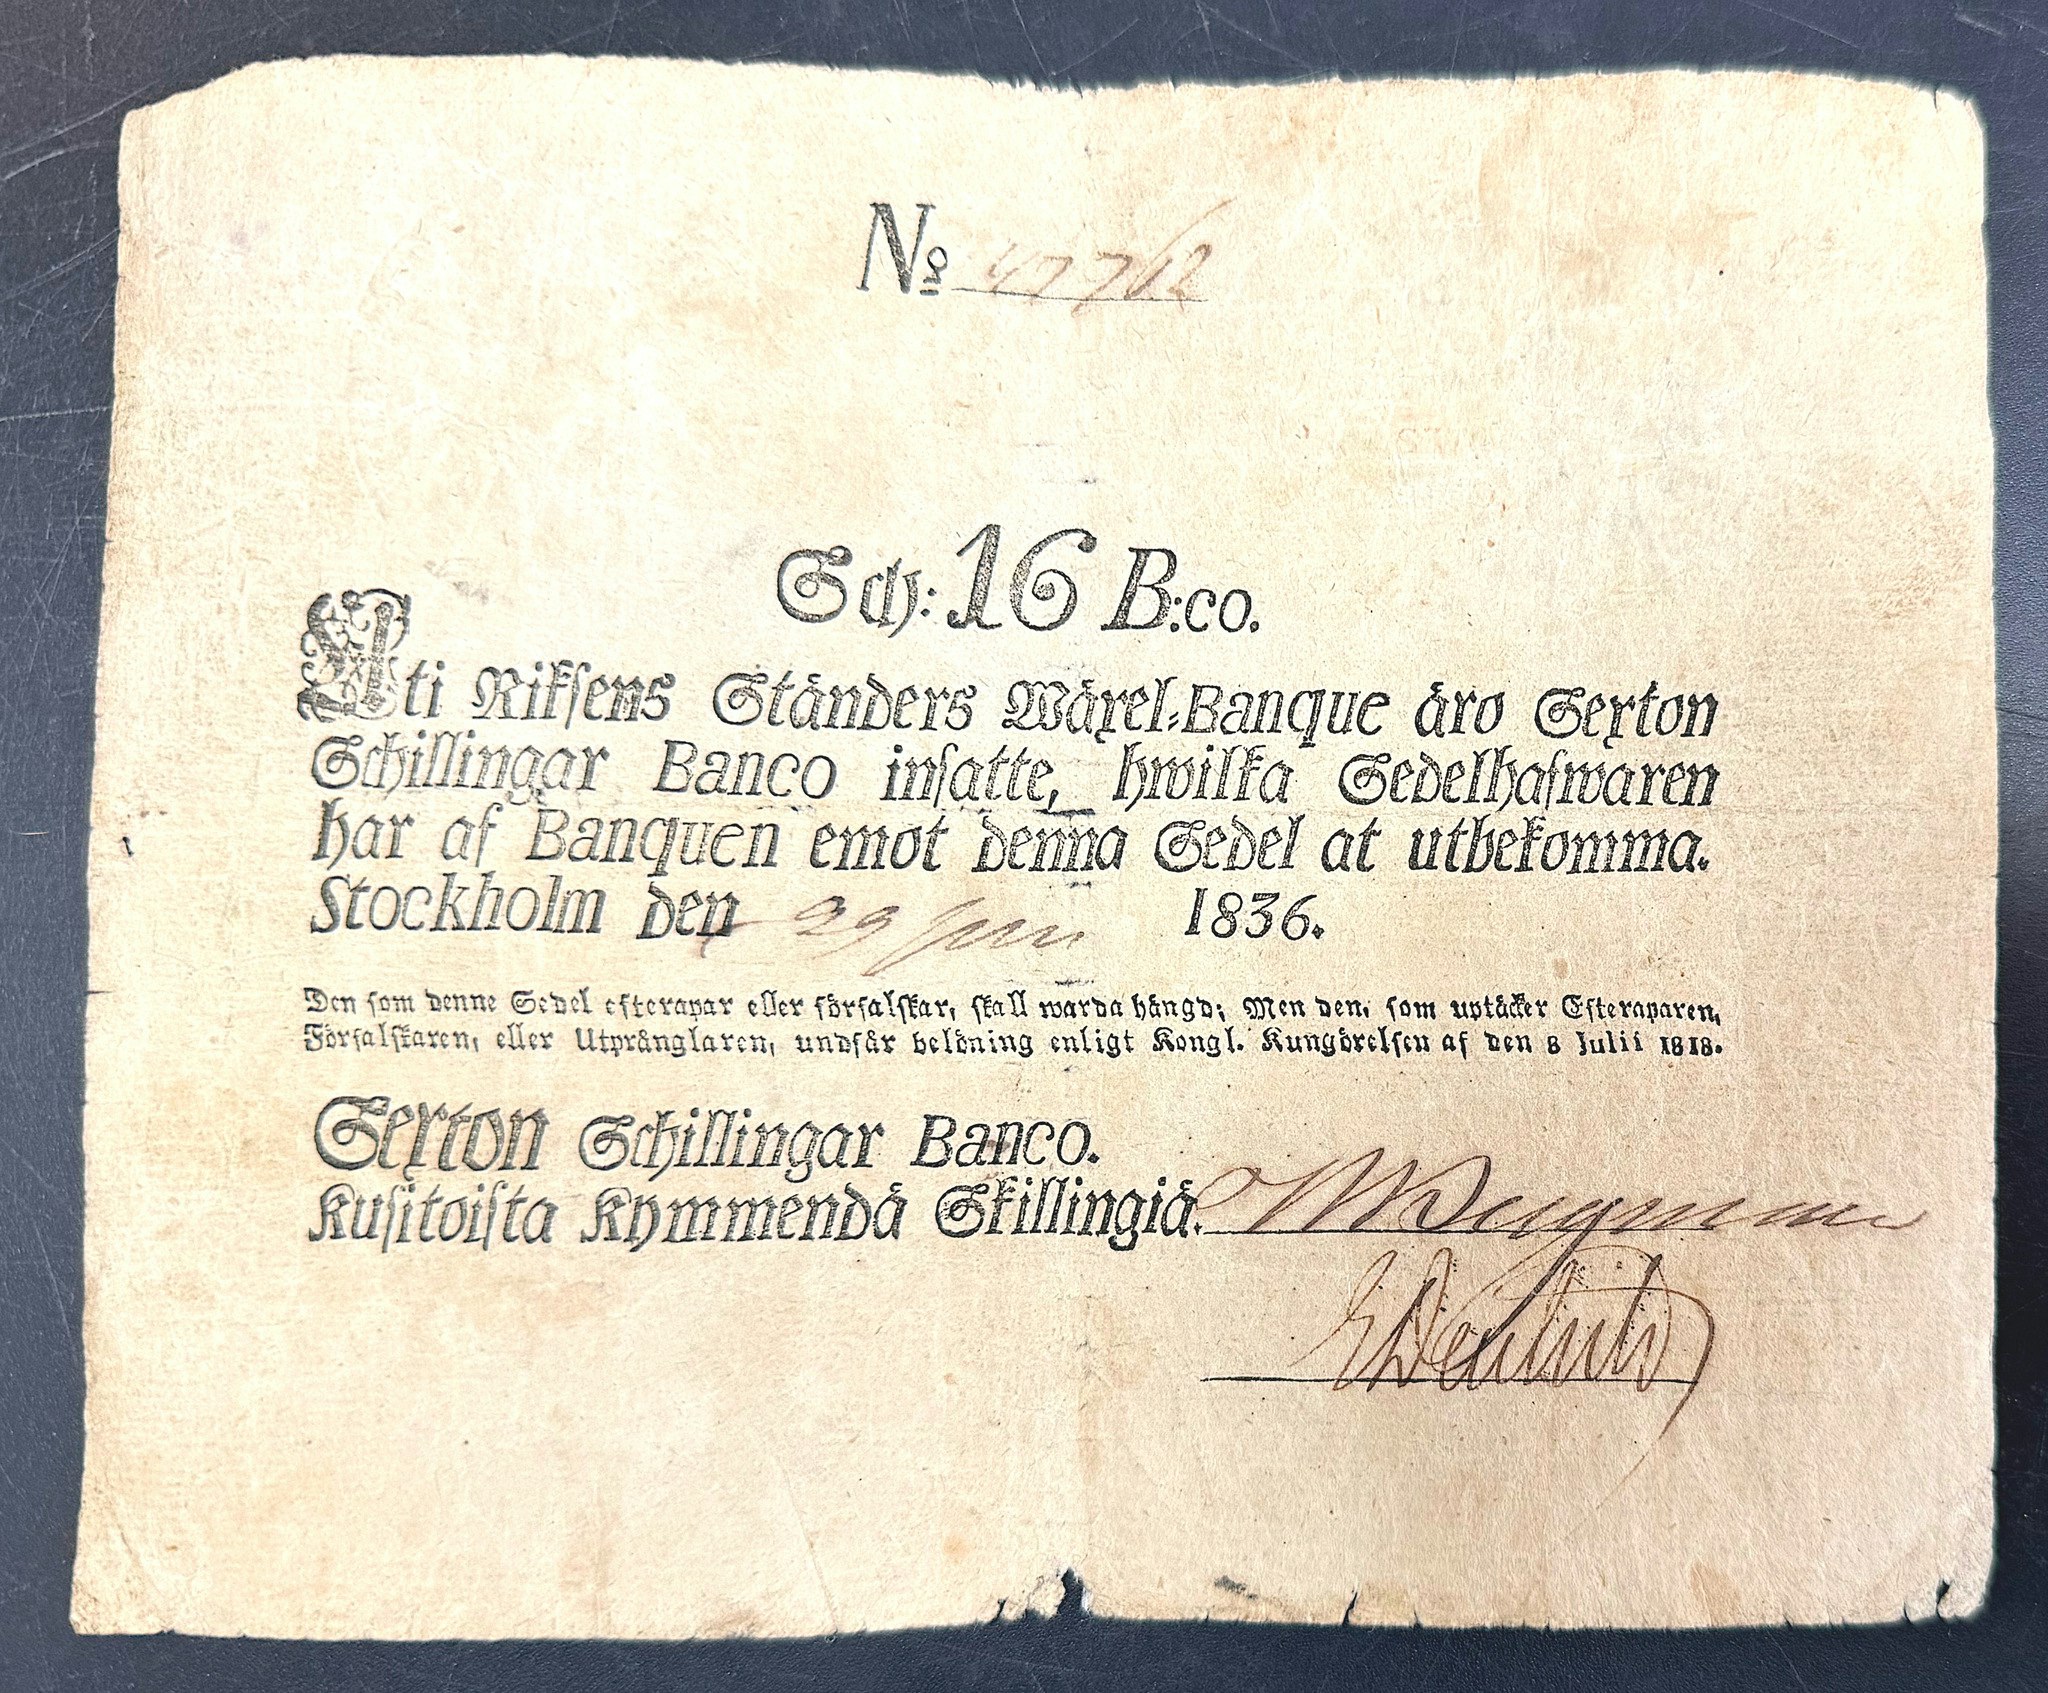 No 47712
Sch: 16 B:co.
Uti Riksens Ständers Wäxel-Banque äro Sexton
Schillingar Banco insatte, hwilka Sedelhafwaren
har af Banquen emot denna Sedel at utbekomma.
Stockholm den 29 Juni 1836.
Den som denne Sedel efterapar eller förfalskar, skall warda hängd; Men den, som uptäcker Efteraparen,
Förfalskaren, eller Utprånglaren, undfår belöning enligt Kongl. Kungörelsen af den 8 Julii 1818.
Sexton Schillingar Banco.
Kusitoista Kymmendä Skillingiä.